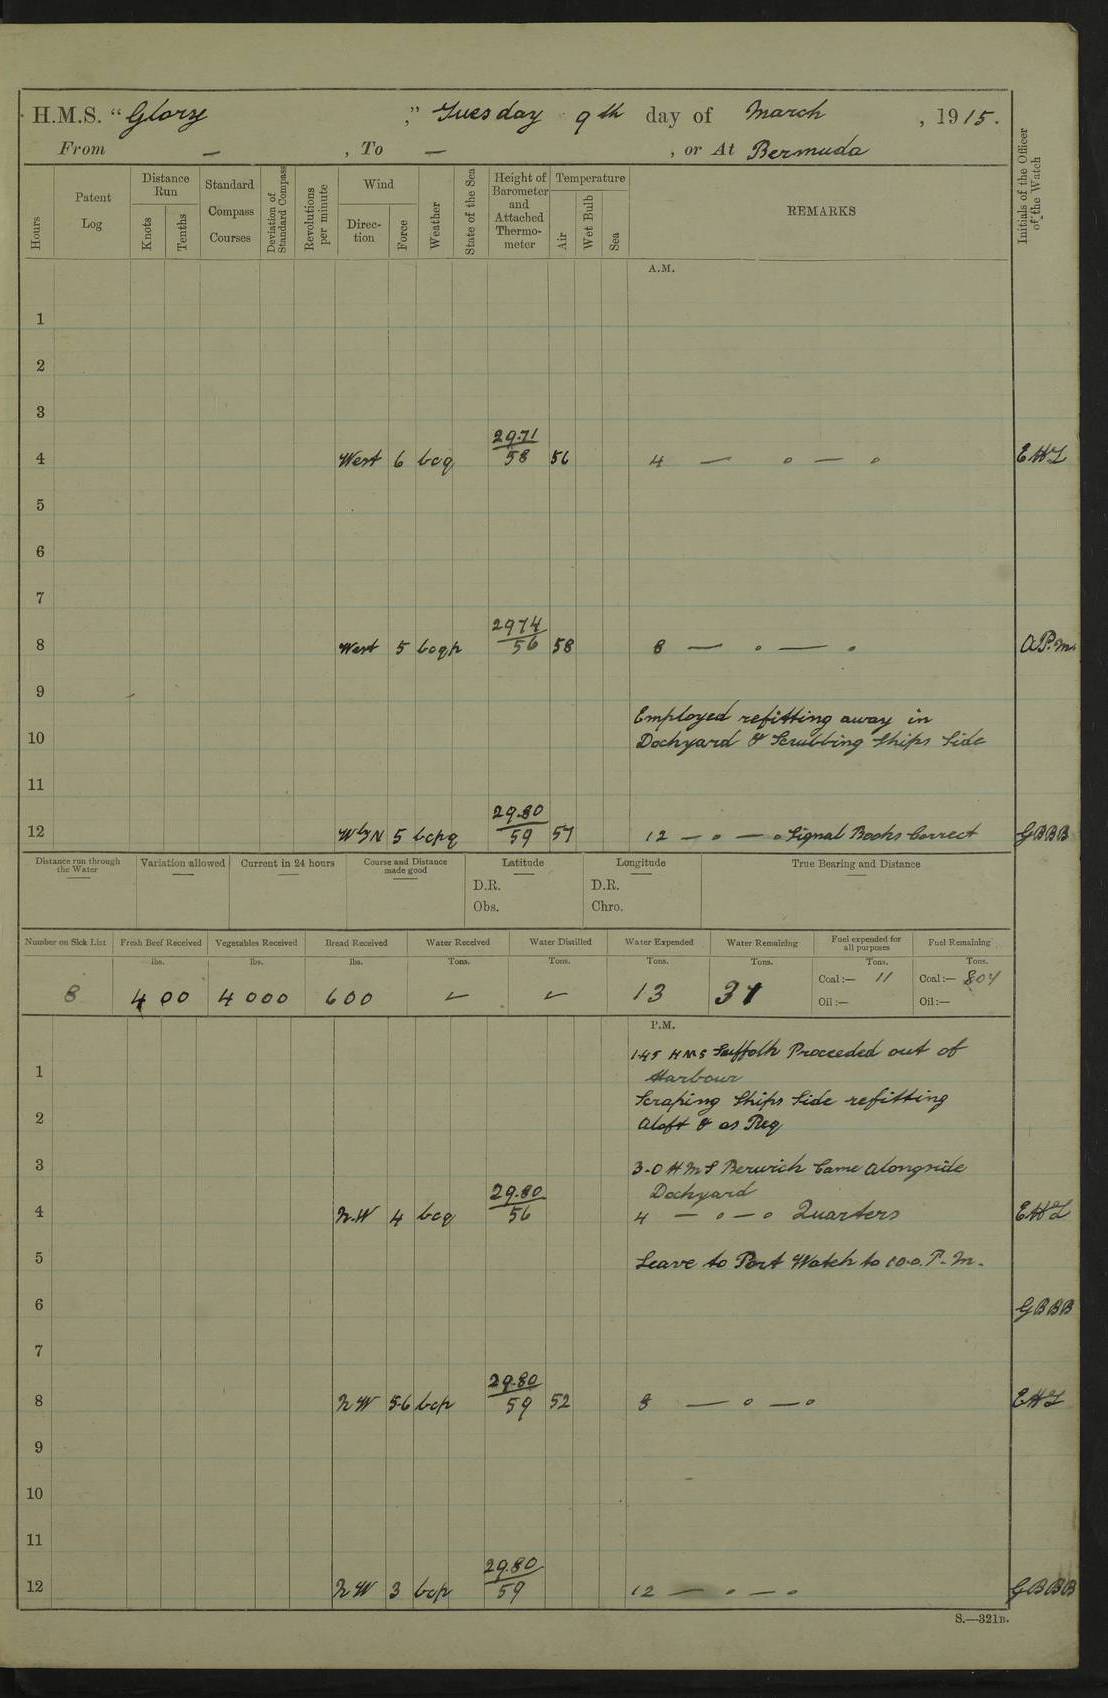 H.M.S. “Glory ,” Tuesday 9th day of March , 1915.
From — , To — , or At Bermuda
Hours
Patent Log
Distance Run
Knots
Tenths
Standard Compass Courses
Deviation of Standard Compass
Revolutions per minute
Wind
Direction
Force
Weather
State of the Sea
Height of Barometer and Attached Thermometer
Temperature
Air
Wet Bulb
Sea
REMARKS
Initials of the Officer of the Watch
A.M.
1
2
3
4 West 6 bcq 29.71/58 56 4 — o — o EHL
5
6
7
8 West 5 bcqp 2974/56 58 8 — o — o A.P.M.
9
Employed refitting away in
10 Dockyard & Scrubbing Ships Side
11
12 WbyN 5 bcpq 29.80/59 57 12 — o — o Signal Books Correct GBBB
Distance run through the Water
Variation allowed
Current in 24 hours
Course and Distance made good
Latitude
D.R.
Obs.
Longitude
D.R.
Chro.
True Bearing and Distance
Number on Sick List Fresh Beef Received Vegetables Received Bread Received Water Received Water Distilled Water Expended Water Remaining Fuel expended for all purposes Fuel Remaining
lbs. lbs. lbs. Tons. Tons. Tons. Tons. Tons. Tons.
8 400 4000 600 – – 13 37 Coal:— 11 Coal:— 804
Oil:— Oil:—
P.M.
1.45 HMS Suffolk Proceeded out of
1 Harbour
Scraping Ships Side refitting
2 Aloft & as Req
3 3-0 HMS Berwick Came Alongside
Dockyard
4 N.W 4 bcq 29.80/56 4 — o — o Quarters EHL
5 Leave to Port Watch to 10.0. P.M.
6 GBBB
7
8 NW 5-6 bcp 29.80/59 52 8 — o — o EHL
9
10
11
12 NW 3 bcp 29.80/59 12 — o — o GBBB
S.—321B.